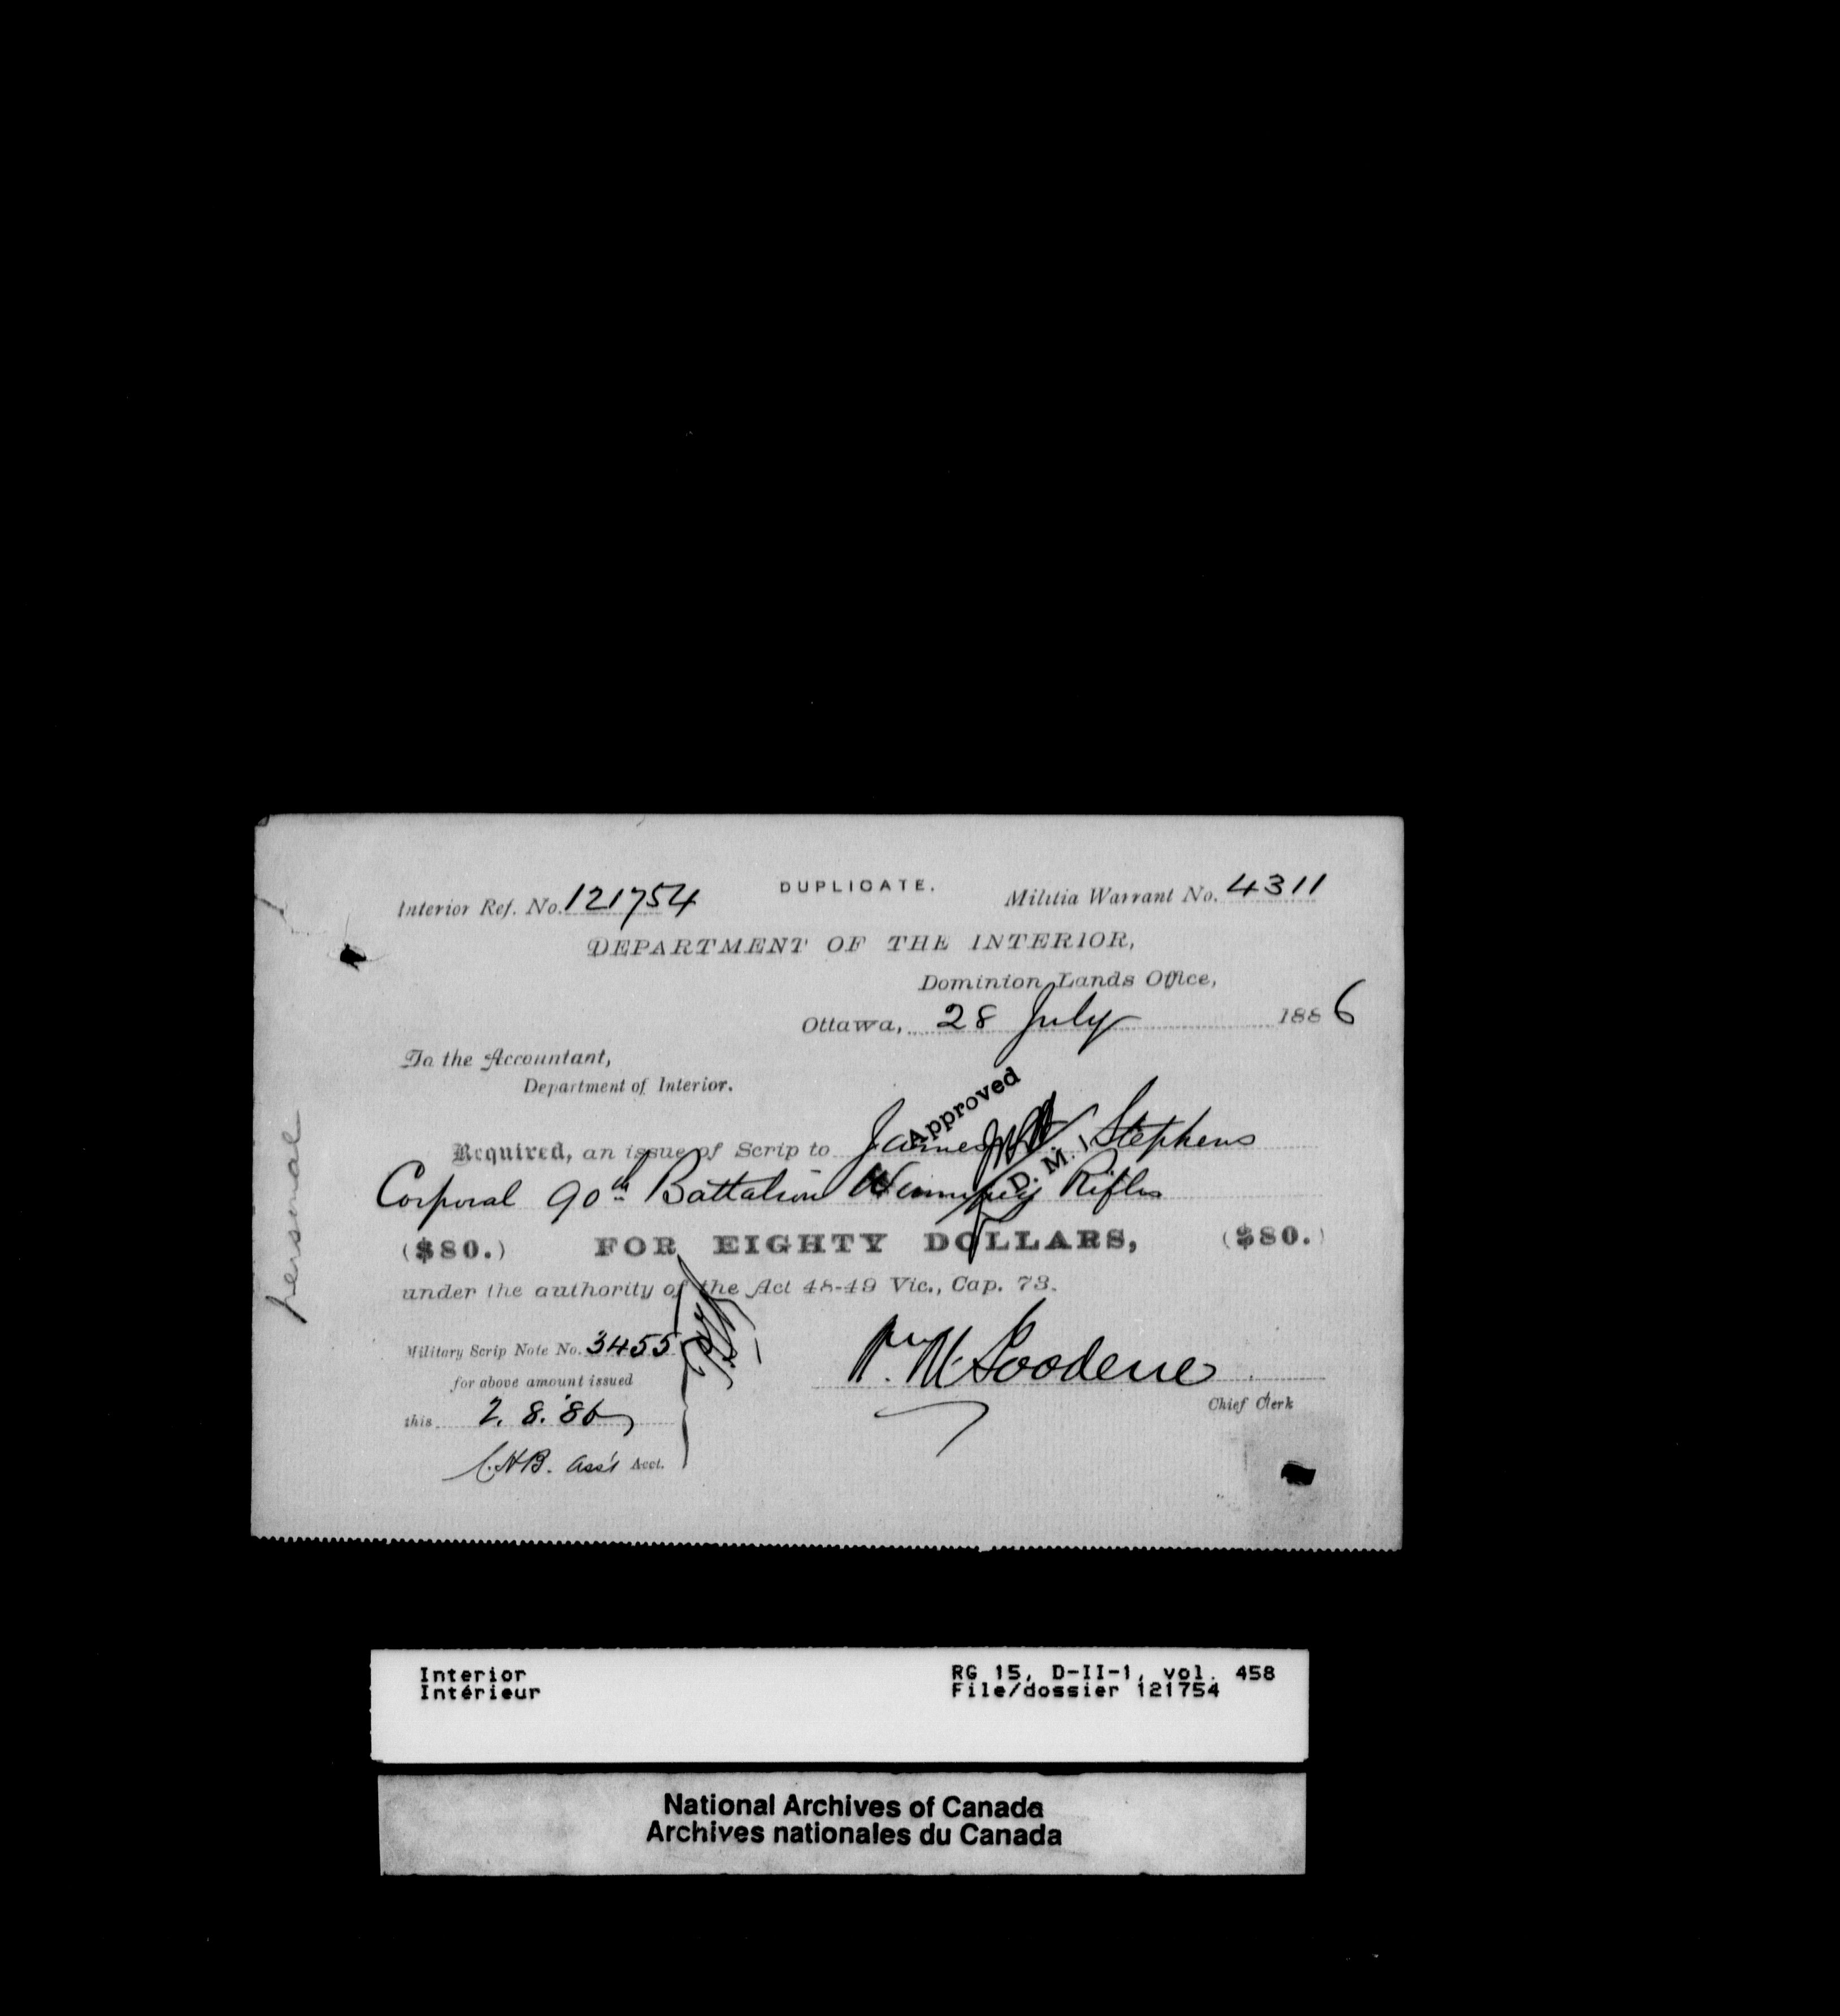 DUPLICATE.
Interior Ref. No. 121754
Militia Warrant No. 4311
DEPARTMENT OF THE INTERIOR,
Dominion Lands Office,
Ottawa, 28 July 1886
To the Accountant,
Department of Interior.
Approved
Required, an issue of Scrip to James Stephens
D. M. I.
Corporal 90th Battalion Winnipeg Rifles
($80.) FOR EIGHTY DOLLARS, ($80.)
under the authority of the Act 48-49 Vic., Cap. 73.
Military Scrip Note No. 3455
for above amount issued
this 2. 8. '86
C.H.B. Ass't Acct.
Chief Clerk
personal
Interior
Intérieur
RG 15, D-II-1, vol. 458
File/dossier 121754
National Archives of Canada
Archives nationales du Canada